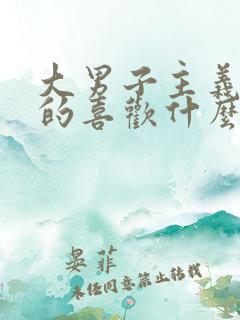 大男子主義
的喜歡什麼
晏菲
未任同意禁止转载